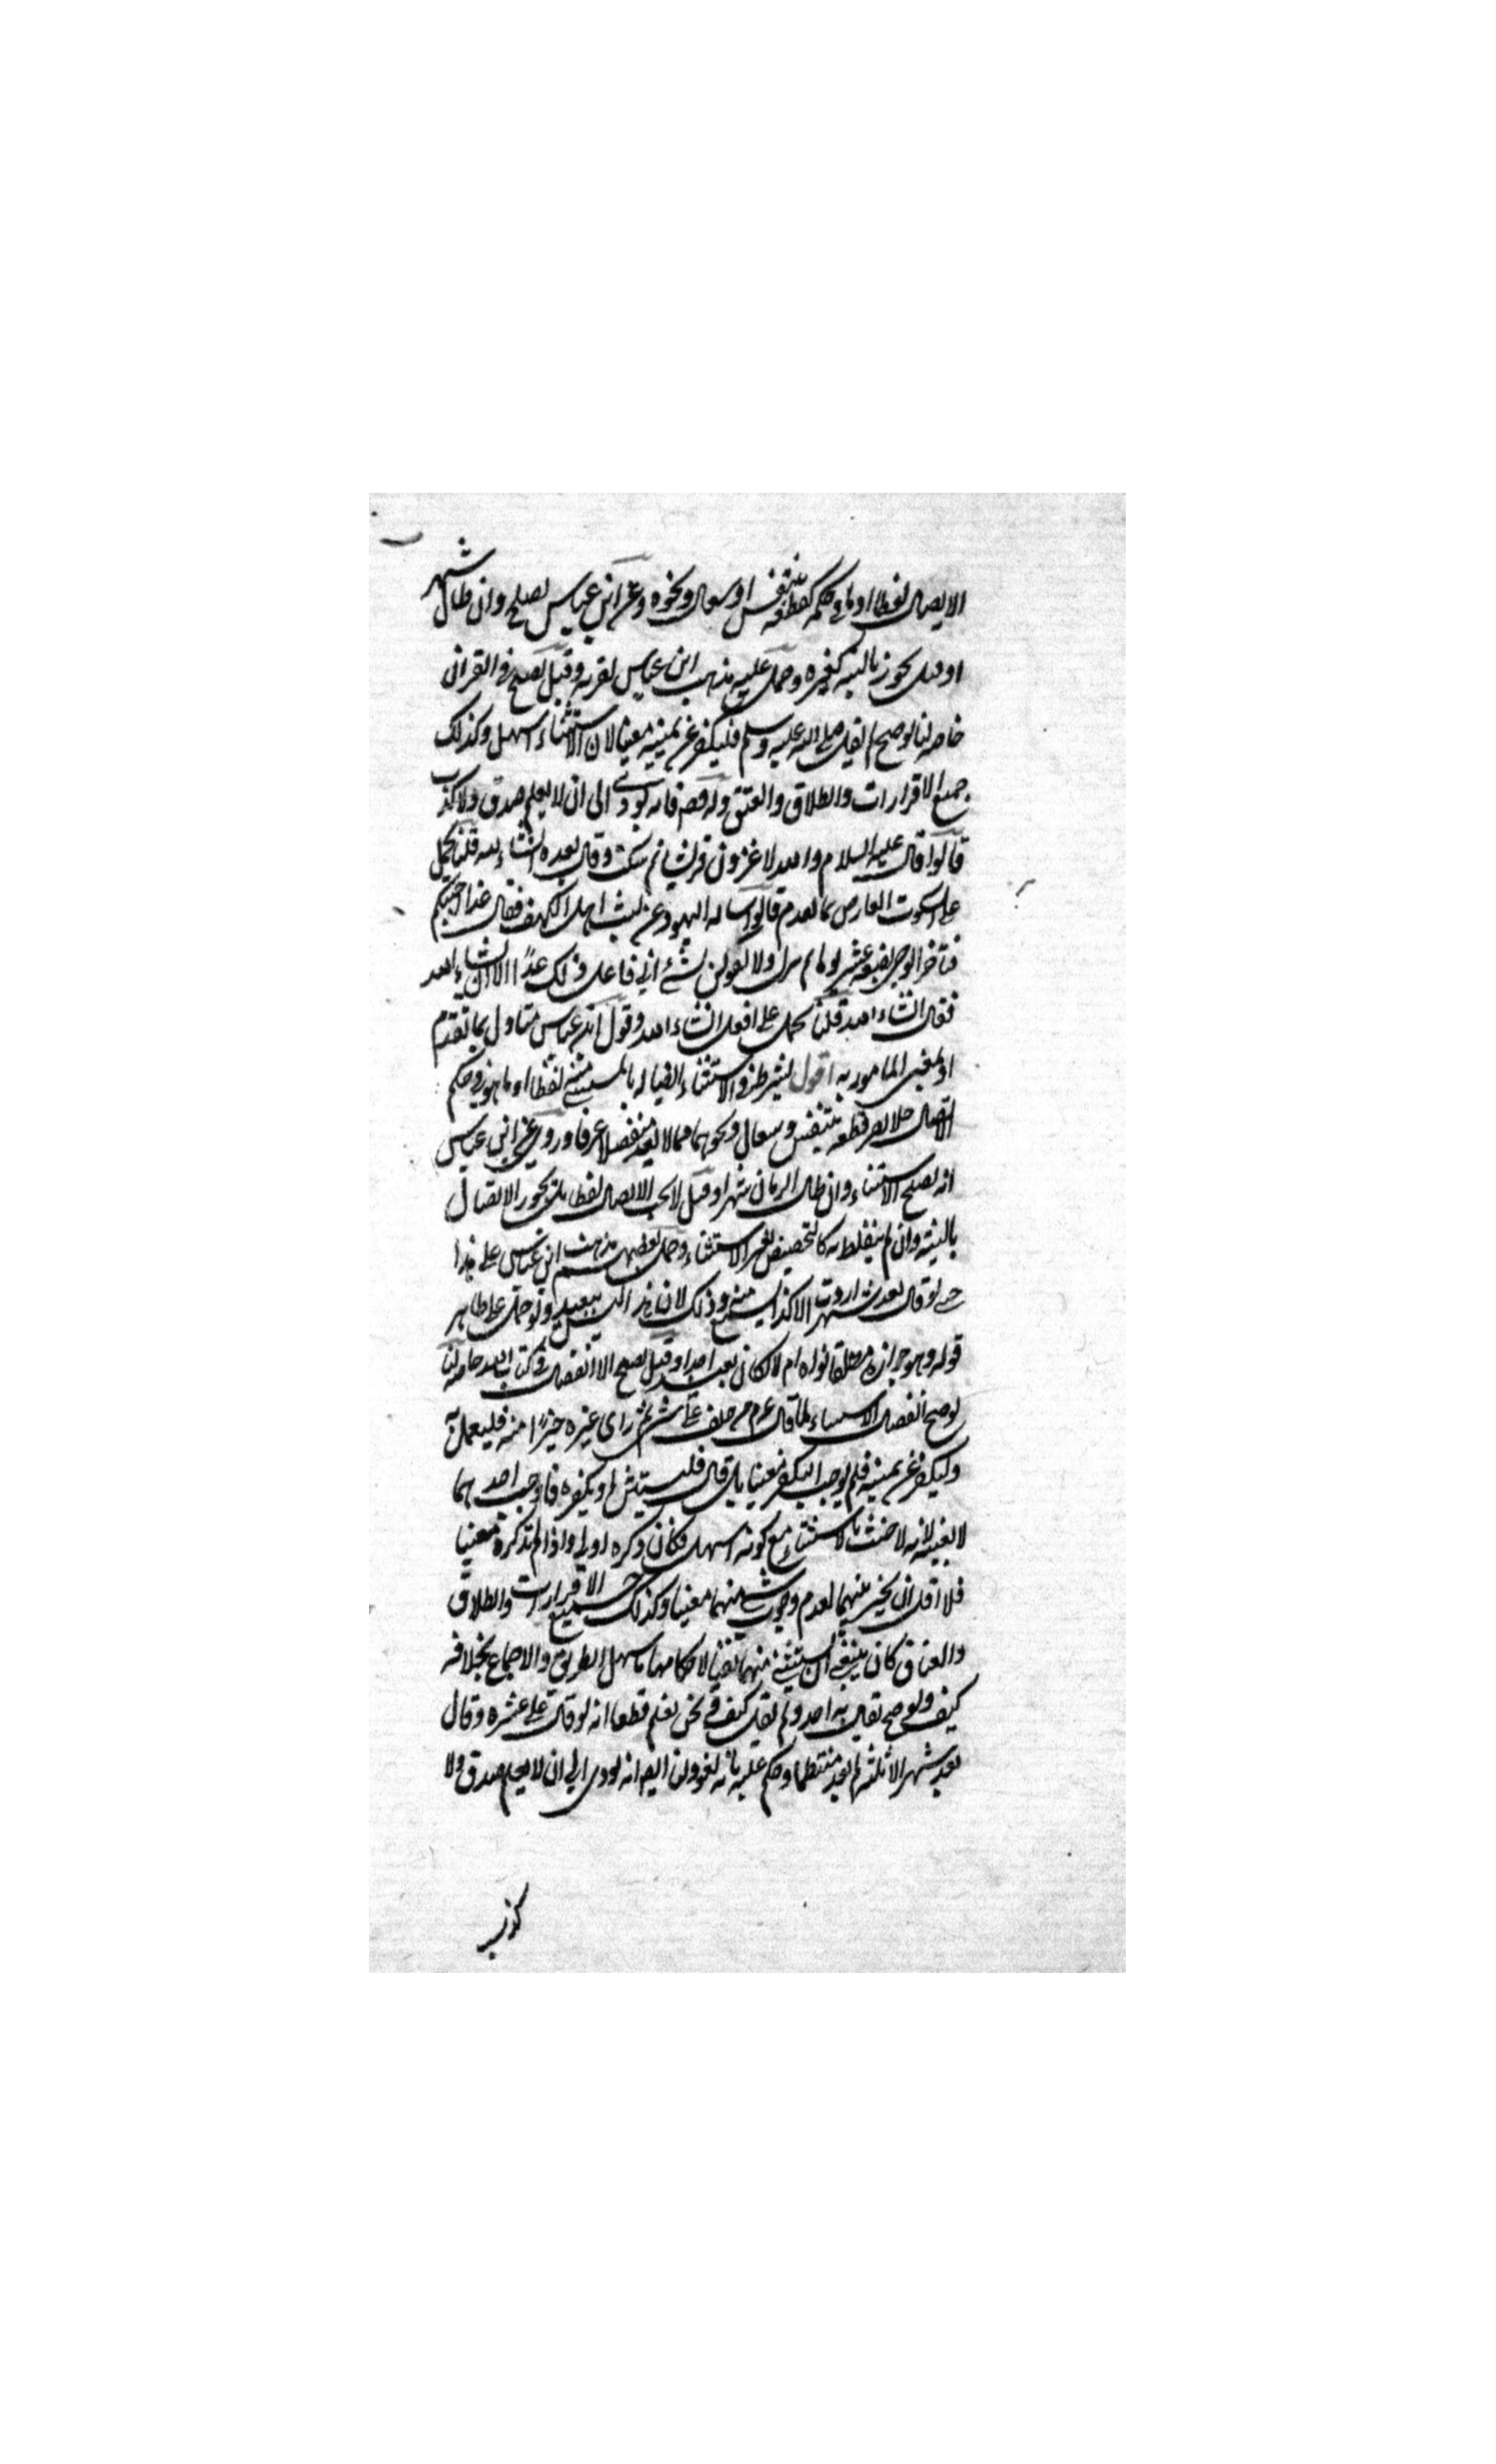 الاتصال لفظا او ما فى حكمه كقطعه بتنفس او سعال ونحوه وعن ابن عباس يصح وان طال شهر
او قيل يجوز بالنية كغيره وحمل عليه مذهب ابن عباس لقربه وقيل يصح فى القرآن
خاصه لنا لو صح لم يقل صلى الله عليه وسلم فليكفر عن يمينه معينا لان الاستثناء اسهل وكذلك
جميع الاقرارات والطلاق والعتق وايضا فانه يودى الى ان لا يعلم صدق ولا كذب
قالوا قال عليه السلام والله لاغزون قريشا ثم سكت وقال بعده انشاء الله قلنا يحمل
على السكوت العارض بما تقدم قالوا ساله اليهود عن لبث اهل الكهف فقال غدا اجيبكم
فتاخر الوحى بضعة عشر يوما ثم نزل ولا تقولن لشئ انى فاعل ذلك غدًا الا ان يشاء الله
فقال انشاء الله قلنا يحمل على افعل انشاء الله وقول ابن عباس متاول بما تقدم
او بمعنى المامور به اقول يشترط فى الاستثناء اتصاله بالمستثنى منه لفظا او ما هو فى حكم
الاتصال فلا يضر قطعه بتنفس وسعال ونحوهما مما لا يعد منفصلا عرفا وروى عن ابن عباس
انه يصح الاستثناء وان طال الزمان شهرا وقيل لا يجب الاتصال لفظا بل يجوز الاتصال
بالنية وان لم يتلفظ به كالتخصيص بغير الاستثناء وحمل بعضهم مذهب ابن عباس على هذا
حتى لو قال بعد شهر اردت الا كذا يسمع منه وذلك لان هذا ليس ببعيد ولو حمل على ظاهر
قوله وهو جوازه مطلقا نواه ام لا لكان بعيدا جدا وقيل يصح الانفصال فى كتاب الله خاصه لنا
لو صح انفصال الاستثناء لما قال عم من حلف على شئ ثم راى غيره خيرًا منه فليعمل به
وليكفر عن يمينه فلم يوجب التكفير معينا بل قال فليستثن او يكفره فاوجب احدهما
لا بعينه لانه لا حنث بالاستثناء مع كونه اسهل فكان ذكره اولى واذا لم يذكره معينا
فلا اقل ان يخير بينهما لعدم وجوب شئ منهما معينا وكذلك جميع الاقرارات والطلاق
والعتاق كان ينبغى ان يستثنى منهما نفيا لاحكامها باسهل الطريق والاجماع بخلافه
كيف ولو صح لقال به احد ولم يقل كيف ونحن نعلم قطعا انه لو قال على عشره وقال
بعد شهر الا ثلثه لم يعد منتظما وحكم عليه بانه لغو ولنا ايضا انه يودى الى ان لا يعلم صدق ولا
كذب